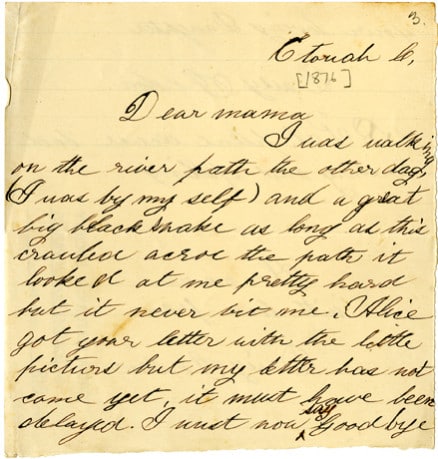 3.
Etowah C,
[1876]
Dear mama
I was walking
on the river path the other day,
(I was by my self) and a great
big black snake as long as this
crauled acroc the path it
looked at me pretty hard
but it never bit me. Alice
got your letter with the little
picturs but my letter has not
come yet, it must have been
delayed. I must now say Good bye